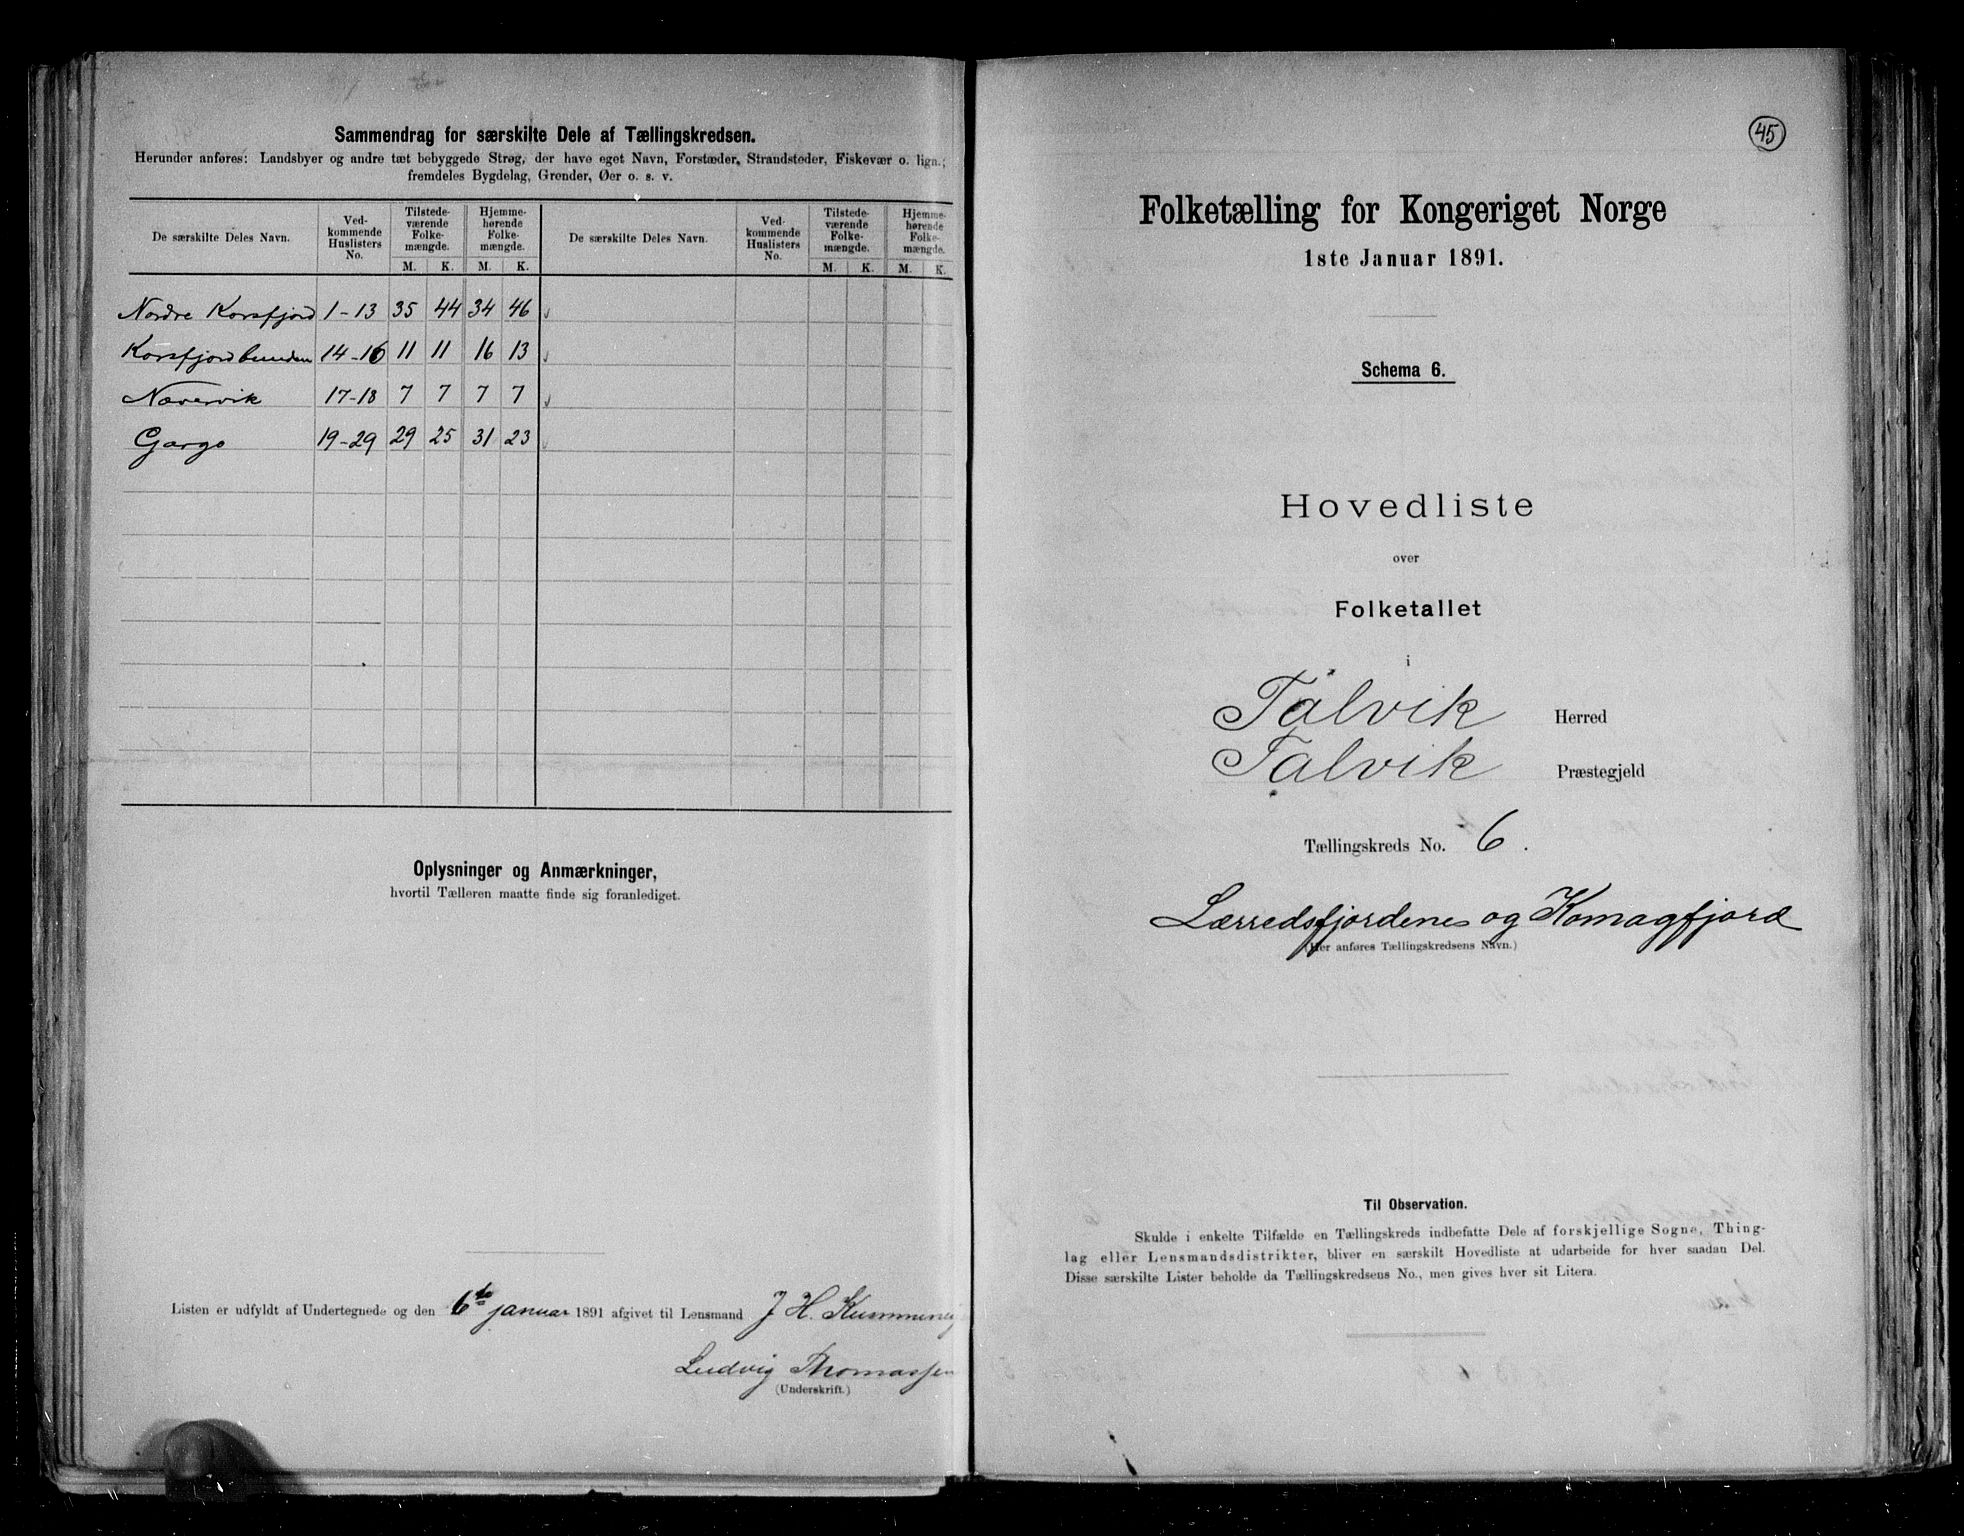 Sammendrag for særskilte Dele af Tællingskredsen.
Herunder anføres: Landsbyer og andre tæt bebyggede Strøg, der have eget Navn, Forstæder, Strandsteder, Fiskevær o. lign.;
fremdeles Bygdelag, Grender, Øer o. s. v.
De særskilte Deles Navn. Ved-kommende Huslisters No. Tilstede-værende Folke-mængde. Hjemme-hørende Folke-mængde. De særskilte Deles Navn. Ved-kommende Huslisters No. Tilstede-værende Folke-mængde. Hjemme-hørende Folke-mængde.
M. K. M. K. M. K. M. K.
Nordre Korsfjord 1-13 35 44 34 46
Korsfjordbunden 14-16 11 11 16 13
Nævervik 17-18 7 7 7 7
Gargo 19-29 29 25 31 23
Oplysninger og Anmærkninger,
hvortil Tælleren maatte finde sig foranlediget.
Listen er udfyldt af Undertegnede og den 6te januar 1891 afgivet til Lensmand J H.
Ludvig Thomassen
(Underskrift.)
45
Folketælling for Kongeriget Norge
1ste Januar 1891.
Schema 6.
Hovedliste
over
Folketallet
i
Talvik Herred
Talvik Præstegjeld
Tællingskreds No. 6.
Lærredsfjordene og Komagfjord
(Her anføres Tællingskredsens Navn.)
Til Observation.
Skulde i enkelte Tilfælde en Tællingskreds indbefatte Dele af forskjellige Sogne, Thing-
lag eller Lensmandsdistrikter, bliver en særskilt Hovedliste at udarbeide for hver saadan Del.
Disse særskilte Lister beholde da Tællingskredsens No., men gives hver sit Litera.